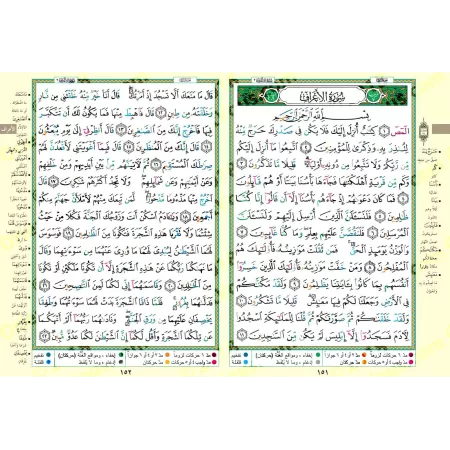 سُورَةُ الْأَعْرَافِ
بِسْمِ اللَّهِ الرَّحْمَٰنِ الرَّحِيمِ
الٓمٓصٓ ١ كِتَٰبٌ أُنزِلَ إِلَيْكَ فَلَا يَكُن فِي صَدْرِكَ حَرَجٌ مِّنْهُ
لِتُنذِرَ بِهِ وَذِكْرَىٰ لِلْمُؤْمِنِينَ ٢ اتَّبِعُوا مَا أُنزِلَ إِلَيْكُم مِّن
رَّبِّكُمْ وَلَا تَتَّبِعُوا مِن دُونِهِ أَوْلِيَاءَ قَلِيلًا مَّا تَذَكَّرُونَ ٣
وَكَم مِّن قَرْيَةٍ أَهْلَكْنَٰهَا فَجَاءَهَا بَأْسُنَا بَيَٰتًا أَوْ هُمْ قَائِلُونَ
٤ فَمَا كَانَ دَعْوَىٰهُمْ إِذْ جَاءَهُم بَأْسُنَا إِلَّا أَن قَالُوا إِنَّا كُنَّا
ظَٰلِمِينَ ٥ فَلَنَسْـَٔلَنَّ الَّذِينَ أُرْسِلَ إِلَيْهِمْ وَلَنَسْـَٔلَنَّ
الْمُرْسَلِينَ ٦ فَلَنَقُصَّنَّ عَلَيْهِم بِعِلْمٍ وَمَا كُنَّا غَائِبِينَ ٧
وَالْوَزْنُ يَوْمَئِذٍ الْحَقُّ فَمَن ثَقُلَتْ مَوَٰزِينُهُ فَأُولَٰئِكَ هُمُ
الْمُفْلِحُونَ ٨ وَمَنْ خَفَّتْ مَوَٰزِينُهُ فَأُولَٰئِكَ الَّذِينَ خَسِرُوا
أَنفُسَهُم بِمَا كَانُوا بِـَٔايَٰتِنَا يَظْلِمُونَ ٩ وَلَقَدْ مَكَّنَّٰكُمْ
فِي الْأَرْضِ وَجَعَلْنَا لَكُمْ فِيهَا مَعَٰيِشَ قَلِيلًا مَّا تَشْكُرُونَ
١٠ وَلَقَدْ خَلَقْنَٰكُمْ ثُمَّ صَوَّرْنَٰكُمْ ثُمَّ قُلْنَا لِلْمَلَٰئِكَةِ اسْجُدُوا
لِـَٔادَمَ فَسَجَدُوا إِلَّا إِبْلِيسَ لَمْ يَكُن مِّنَ السَّٰجِدِينَ ١١
١٥١
قَالَ مَا مَنَعَكَ أَلَّا تَسْجُدَ إِذْ أَمَرْتُكَ قَالَ أَنَا خَيْرٌ مِّنْهُ خَلَقْتَنِي مِن نَّارٍ
وَخَلَقْتَهُ مِن طِينٍ ١٢ قَالَ فَاهْبِطْ مِنْهَا فَمَا يَكُونُ لَكَ أَن تَتَكَبَّرَ
فِيهَا فَاخْرُجْ إِنَّكَ مِنَ الصَّٰغِرِينَ ١٣ قَالَ أَنظِرْنِي إِلَىٰ يَوْمِ يُبْعَثُونَ
١٤ قَالَ إِنَّكَ مِنَ الْمُنظَرِينَ ١٥ قَالَ فَبِمَا أَغْوَيْتَنِي لَأَقْعُدَنَّ لَهُمْ
صِرَٰطَكَ الْمُسْتَقِيمَ ١٦ ثُمَّ لَـَٔاتِيَنَّهُم مِّن بَيْنِ أَيْدِيهِمْ وَمِنْ خَلْفِهِمْ
وَعَنْ أَيْمَٰنِهِمْ وَعَن شَمَائِلِهِمْ وَلَا تَجِدُ أَكْثَرَهُمْ شَٰكِرِينَ ١٧ قَالَ
اخْرُجْ مِنْهَا مَذْءُومًا مَّدْحُورًا لَّمَن تَبِعَكَ مِنْهُمْ لَأَمْلَأَنَّ جَهَنَّمَ مِنكُمْ
أَجْمَعِينَ ١٨ وَيَٰـَٔادَمُ اسْكُنْ أَنتَ وَزَوْجُكَ الْجَنَّةَ فَكُلَا مِنْ حَيْثُ
شِئْتُمَا وَلَا تَقْرَبَا هَٰذِهِ الشَّجَرَةَ فَتَكُونَا مِنَ الظَّٰلِمِينَ ١٩ فَوَسْوَسَ
لَهُمَا الشَّيْطَٰنُ لِيُبْدِيَ لَهُمَا مَا وُۥرِيَ عَنْهُمَا مِن سَوْءَٰتِهِمَا وَقَالَ
مَا نَهَىٰكُمَا رَبُّكُمَا عَنْ هَٰذِهِ الشَّجَرَةِ إِلَّا أَن تَكُونَا مَلَكَيْنِ أَوْ تَكُونَا
مِنَ الْخَٰلِدِينَ ٢٠ وَقَاسَمَهُمَا إِنِّي لَكُمَا لَمِنَ النَّٰصِحِينَ ٢١
فَدَلَّىٰهُمَا بِغُرُورٍ فَلَمَّا ذَاقَا الشَّجَرَةَ بَدَتْ لَهُمَا سَوْءَٰتُهُمَا وَطَفِقَا
يَخْصِفَانِ عَلَيْهِمَا مِن وَرَقِ الْجَنَّةِ وَنَادَىٰهُمَا رَبُّهُمَا أَلَمْ أَنْهَكُمَا
عَن تِلْكُمَا الشَّجَرَةِ وَأَقُل لَّكُمَا إِنَّ الشَّيْطَٰنَ لَكُمَا عَدُوٌّ مُّبِينٌ ٢٢
١٥٢